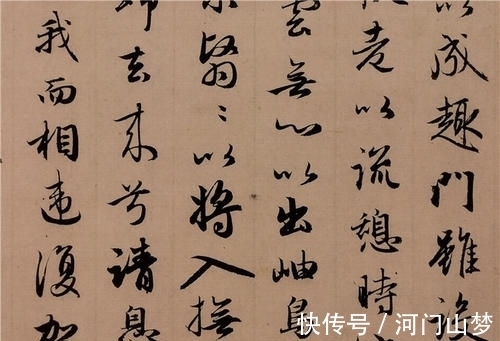 以成趣門雖設
老以流憩時
雲無心以出岫鳥
翳〻以將入撫
歸去來兮請息
我而相違復
快传号 / 河门山梦